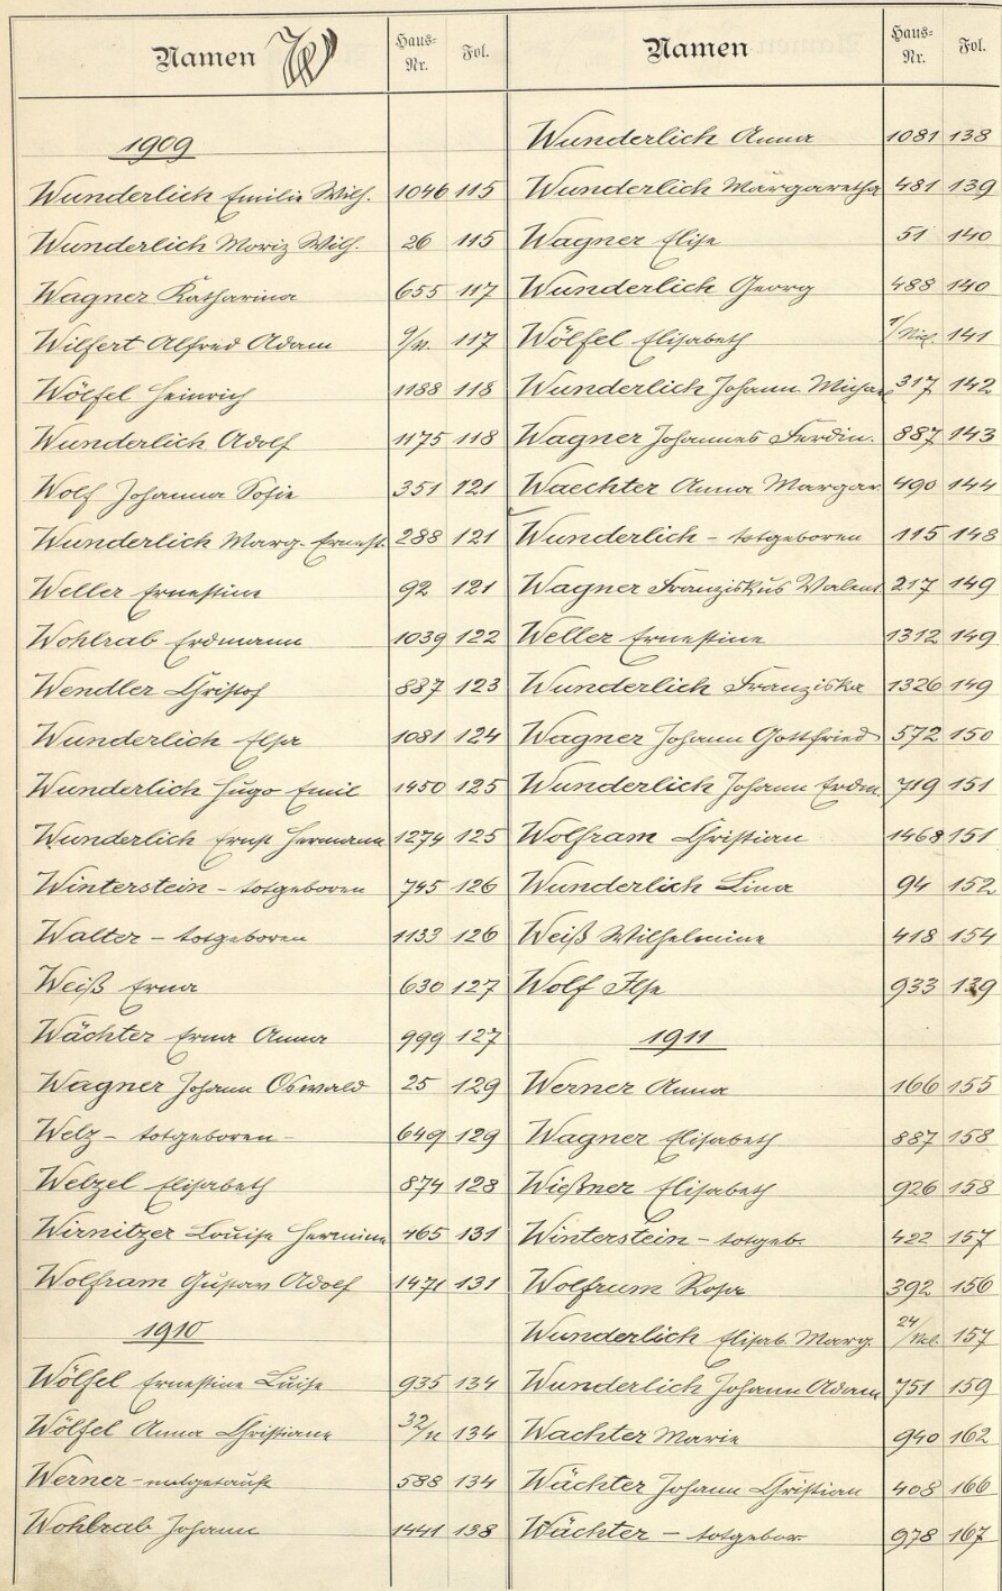 Namen W Haus-Nr. Fol.
1909
Wunderlich Emilie Wilh. 1046 115
Wunderlich Moriz Wilh. 26 115
Wagner Katharina 655 117
Wilfert Alfred Adam 9/n. 117
Wölfel Heinrich 1188 118
Wunderlich Adolf 1175 118
Wolf Johanna Sofie 351 121
Wunderlich Marg. Ernest. 288 121
Weller Ernestine 92 121
Wohlrab Erdmann 1039 122
Wendler Christof 887 123
Wunderlich Elsa 1081 124
Wunderlich Hugo Emil 1450 125
Wunderlich Ernst Hermann 1274 125
Winterstein - totgeboren 745 126
Walter - totgeboren 1133 126
Weiß Erna 630 127
Wächter Erna Anna 999 127
Wagner Johann Oswald 25 129
Welz - totgeboren - 649 129
Welzel Elisabeth 874 128
Wirnitzer Louise Hermine 465 131
Wolfram Gustav Adolf 1471 131
1910
Wölfel Ernestine Luise 935 134
Wölfel Anna Christiane 32/n 134
Werner - notgetauft 588 134
Wohlrab Johann 1441 138
Namen Haus-Nr. Fol.
Wunderlich Anna 1081 138
Wunderlich Margaretha 481 139
Wagner Elise 51 140
Wunderlich Georg 488 140
Wölfel Elisabeth 141
Wunderlich Johann Michae 317 142
Wagner Johannes Ferdin. 887 143
Waechter Anna Margar. 490 144
Wunderlich - totgeboren 115 148
Wagner Franziskus Valent. 217 149
Weller Ernestine 1312 149
Wunderlich Franziska 1326 149
Wagner Johann Gottfried 572 150
Wunderlich Johann Erdm. 719 151
Wolfram Christian 1468 151
Wunderlich Lina 94 152
Weiß Wilhelmine 418 154
Wolf Ilse 933 139
1911
Werner Anna 166 155
Wagner Elisabeth 887 158
Wießner Elisabeth 926 158
Winterstein - totgeb. 422 157
Wolfrum Rosa 392 156
Wunderlich Elisab. Marg. 24/ 157
Wunderlich Johann Adam 751 159
Wachter Marie 940 162
Wächter Johann Christian 408 166
Wächter - totgebor. 978 167